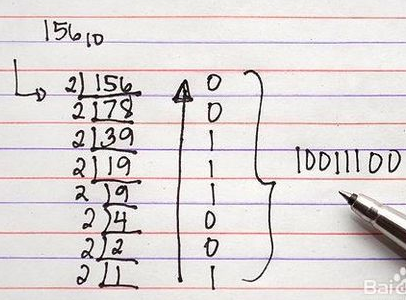 156₁₀
2 156 0
2 78 0
2 39 1
2 19 1
2 9 1
2 4 0
2 2 0
2 1 1
10011100
Bai